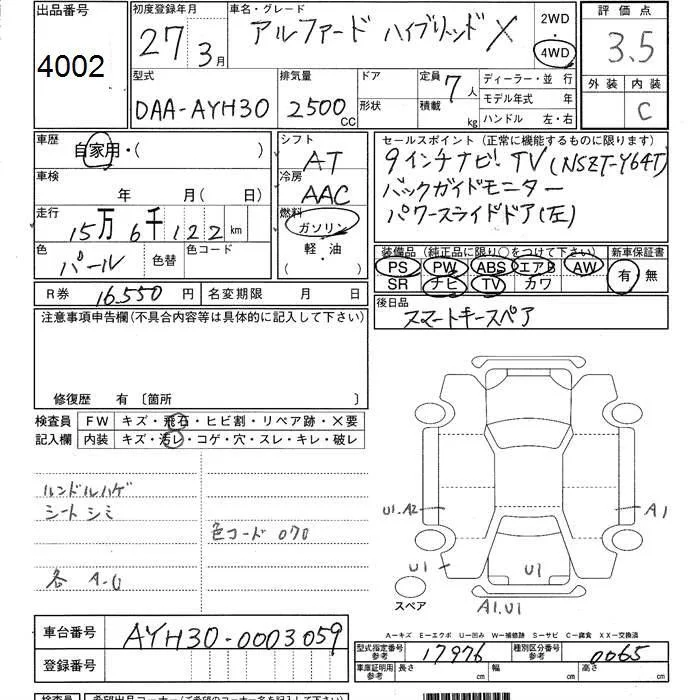 出品番号
4002
初度登録年月
27 3月
車名・グレード
アルファード ハイブリッド X
2WD
・
4WD
評価点
3.5
外装 内装
C
型式
DAA-AYH30
排気量
2500 CC
ドア
形状
定員 7 人
積載 kg
ディーラー・並 行
モデル年式 年
ハンドル 左・右
車歴
自家用・( )
車検
年 月( 日)
走行
15万 6千 122 km
色
パール
色替
色コード
シフト
AT
冷房
AAC
燃料
ガソリン
・
軽・油
( )
セールスポイント (正常に機能するものに限ります)
9インチナビ! TV(NSZT-Y64T)
バックガイドモニター
パワースライドドア(左)
装備品 (純正品に限り○をつけて下さい)
PS PW ABS エアB AW
SR ナビ TV カワ
新車保証書
有 無
R券 16,550 円
名変期限 月 日
後日品
スマートキースペア
注意事項申告欄(不具合内容等は具体的に記入して下さい)
修復歴 有 〔箇所 〕
検査員
記入欄
FW キズ・飛石・ヒビ割・リペア跡・X要
内装 キズ・汚レ・コゲ・穴・スレ・キレ・破レ
ハンドルハゲ
シートシミ
色コード 070
各 A-U
U1.A2
A1
U1
U1
A1.U1
スペア
A－キズ E－エクボ U－凹み W－補修跡 S－サビ C－腐食 XX－交換済
車台番号
AYH30-0003059
登録番号
型式指定番号
参考
17976
種別区分番号
参考
0065
車庫証明用
参考
長さ cm
幅 cm
高さ cm
検査員
希望出品コーナー(ご希望のコーナー名を記入して下さい)